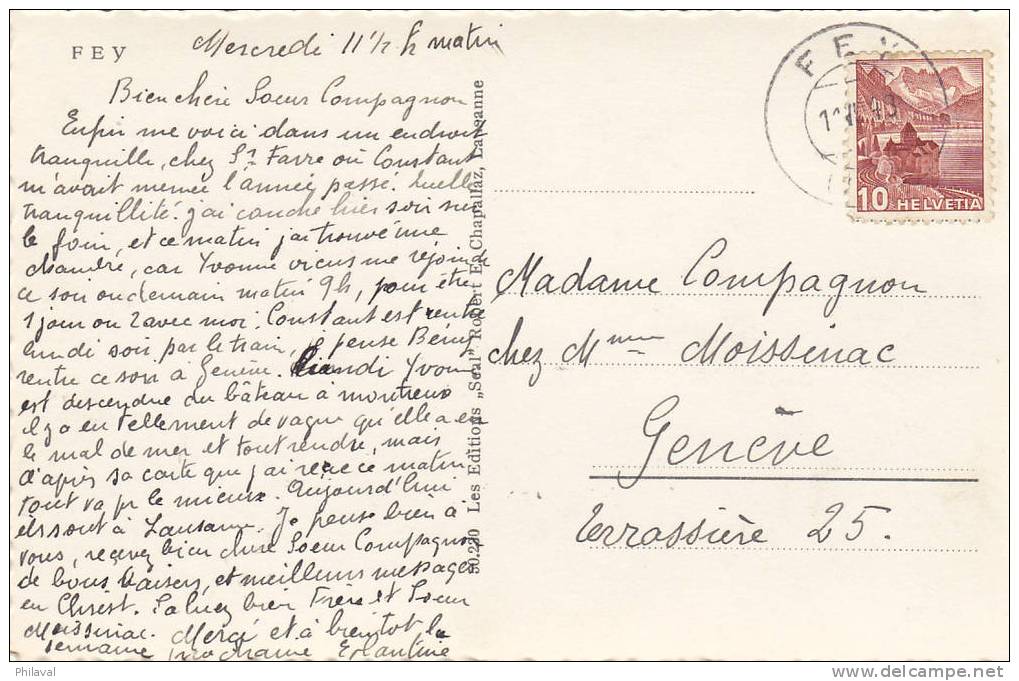 FEY
Mercredi 11 1/2 h matin
Bien chère Soeur Compagnon
Enfin me voici dans un endroit
tranquille, chez Sr Favre où Constant
m'avait menée l'année passé. Quelle
tranquillité. j'ai couché hier soir sur
le foin, et ce matin j'ai trouvé une
chambre, car Yvonne viens me rejoindre
ce soir ou demain matin 9h, pour être
1 jour ou 2 avec moi. Constant est rentré
lundi soir par le train, je pense Bény
rentre ce soir à Genève. Lundi Yvonne
est descendue du bâteau à montreux
il y a eu tellement de vague qu'elle a eu
le mal de mer et tout rendre, mais
d'après sa carte que j'ai reçue ce matin
tout va pr le mieux. Aujourd'hui
ils sont à Lausanne. Je pense bien à
vous, recevez bien chère Soeur Compagnon
de bons baisers, et meilleurs messages
en Christ. Saluez bien Frère et Soeur
Moissinac. Merci et à bientot la
semaine prochaine Eglantine
50.230 Les Editions „Seal" Robert E. Chapallaz, Lausanne
FEY
10 HELVETIA
Madame Compagnon
chez Mme Moissinac
Genève
Terrassière 25.
Philaval
www.delcampe.net